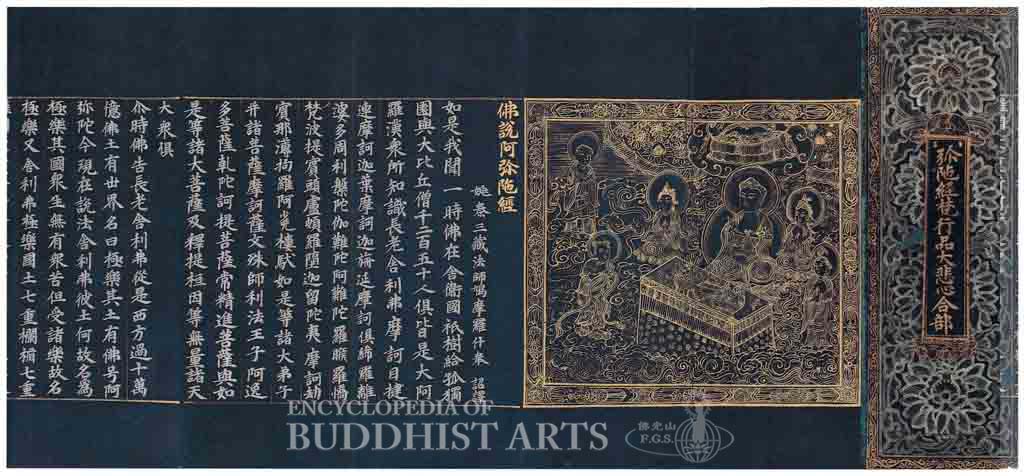 弥陁經梵行品大悲合部
佛說阿弥陁經
姚秦三藏法師鳩摩羅什奉 詔譯
如是我聞一時佛在舍衛國祇樹給孤獨
園與大比丘僧千二百五十人俱皆是大阿
羅漢衆所知識長老舍利弗摩訶目揵
連摩訶迦葉摩訶迦旃延摩訶俱絺羅離
婆多周利槃陀伽難陀阿難陀羅睺羅憍
梵波提賓頭盧頗羅墮迦留陀夷摩訶劫
賓那薄拘羅阿㝹樓馱如是等諸大弟子
幷諸菩薩摩訶薩文殊師利法王子阿逸
多菩薩乹陀訶提菩薩常精進菩薩與如
是等諸大菩薩及釋提桓因等無量諸天
大衆俱
尒時佛告長老舍利弗從是西方過十萬
億佛土有世界名曰極樂其土有佛号阿
弥陀今現在說法舍利弗彼土何故名爲
極樂其國衆生無有衆苦但受諸樂故名
極樂又舍利弗極樂國土七重欄楯七重
ENCYCLOPEDIA OF
BUDDHIST ARTS
佛光山
F.G.S.